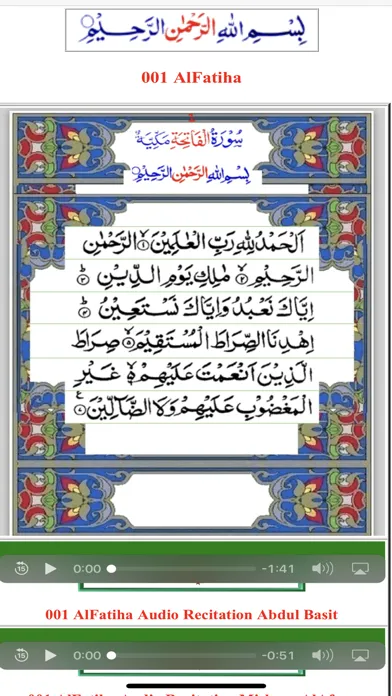 بِسْمِ اللهِ الرَّحْمٰنِ الرَّحِيْمِ
001 AlFatiha
سُوْرَةُ الْفَاتِحَةِ مَكِّيَّةٌ
بِسْمِ اللهِ الرَّحْمٰنِ الرَّحِيْمِ
اَلْحَمْدُ لِلّٰهِ رَبِّ الْعٰلَمِيْنَ ۙ﴿۱﴾ الرَّحْمٰنِ
الرَّحِيْمِ ۙ﴿۲﴾ مٰلِكِ يَوْمِ الدِّيْنِ ؕ﴿۳﴾
اِيَّاكَ نَعْبُدُ وَاِيَّاكَ نَسْتَعِيْنُ ؕ﴿۴﴾
اِهْدِنَا الصِّرَاطَ الْمُسْتَقِيْمَ ۙ﴿۵﴾ صِرَاطَ
الَّذِيْنَ اَنْعَمْتَ عَلَيْهِمْ ۙ۬﴿۶﴾ غَيْرِ
الْمَغْضُوْبِ عَلَيْهِمْ وَلَا الضَّآلِّيْنَ
15 0:00 -1:41
001 AlFatiha Audio Recitation Abdul Basit
15 0:00 -0:51